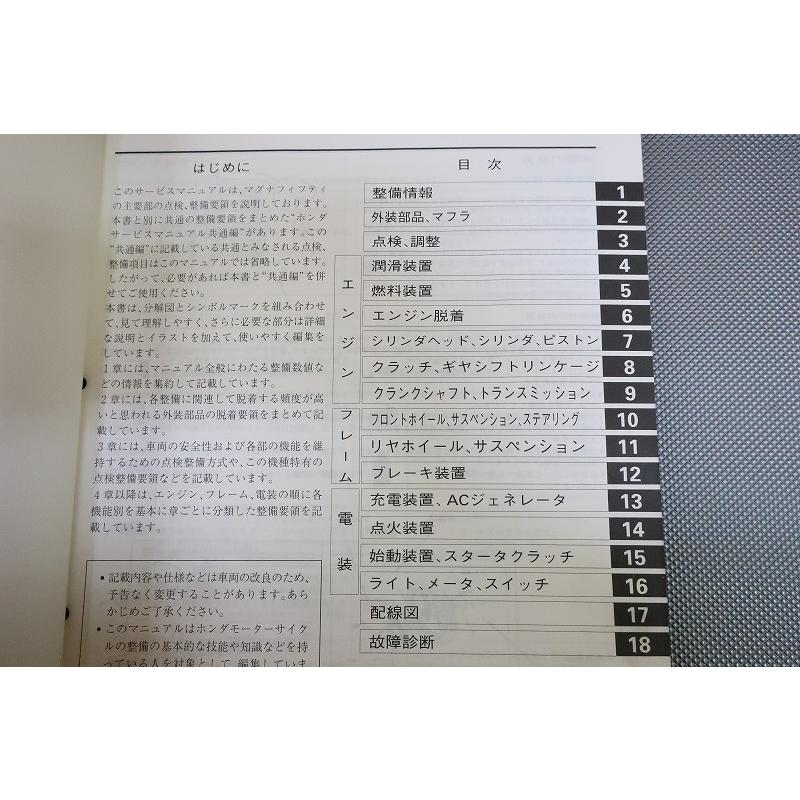 はじめに
このサービスマニュアルは、マグナフィフティ
の主要部の点検、整備要領を説明しております。
本書と別に共通の整備要領をまとめた“ホンダ
サービスマニュアル共通編”があります。この
“共通編”に記載している共通とみなされる点検、
整備項目はこのマニュアルでは省略しています。
したがって、必要があれば本書と“共通編”を併
せてご使用ください。
本書は、分解図とシンボルマークを組み合わせ
て、見て理解しやすく、さらに必要な部分は詳細
な説明とイラストを加えて、使いやすく編集を
しています。
1章には、マニュアル全般にわたる整備数値な
どの情報を集約して記載しています。
2章には、各整備に関連して脱着する頻度が高
いと思われる外装部品の脱着要領をまとめて記
載しています。
3章には、車両の安全性および各部の機能を維
持するための点検整備方式や、この機種特有の
点検整備要領などを記載しています。
4章以降は、エンジン、フレーム、電装の順に各
機能別を基本に章ごとに分類した整備要領を記
載しています。
• 記載内容や仕様などは車両の改良のため、
予告なく変更することがあります。あら
かじめご了承ください。
• このマニュアルはホンダモーターサイク
ルの整備の基本的な技能や知識などを持
っている人を対象として、編集していま
目 次
整備情報 1
外装部品、マフラ 2
点検、調整 3
エンジン
潤滑装置 4
燃料装置 5
エンジン脱着 6
シリンダヘッド、シリンダ、ピストン 7
クラッチ、ギヤシフトリンケージ 8
クランクシャフト、トランスミッション 9
フレーム
フロントホイール、サスペンション、ステアリング 10
リヤホイール、サスペンション 11
ブレーキ装置 12
電装
充電装置、ACジェネレータ 13
点火装置 14
始動装置、スタータクラッチ 15
ライト、メータ、スイッチ 16
配線図 17
故障診断 18